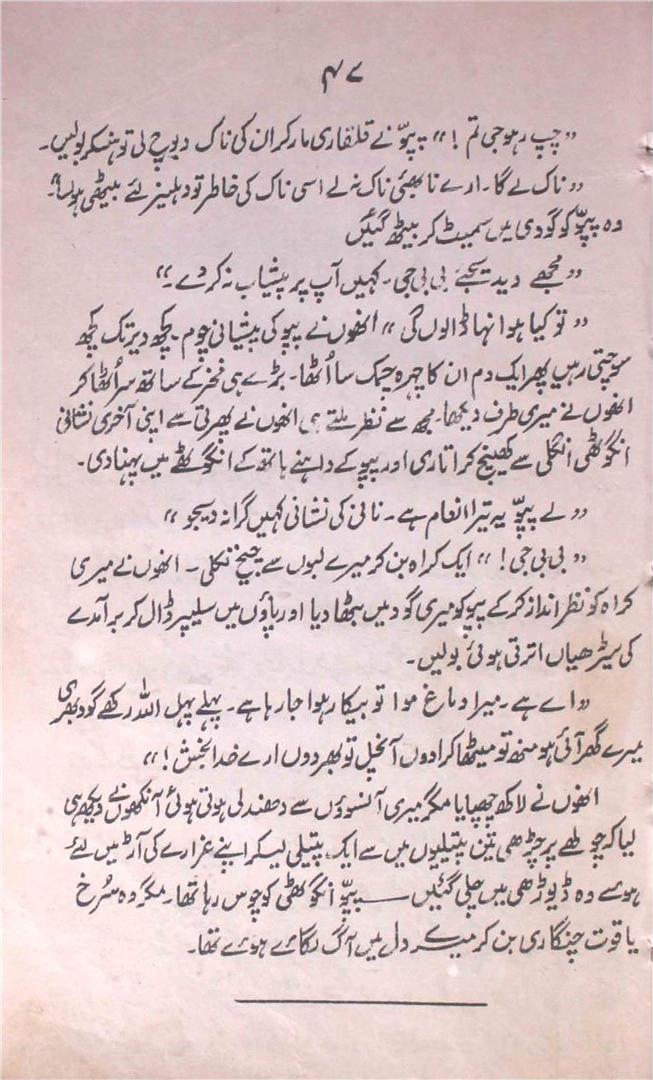 ۴۷
”چپ رہو جی تم!“ پپوّ نے قلقاری مار کر ان کی ناک دبوچ لی تو ہنسکر بولیں۔
”ناک لے گا۔ ارے نا بھئی ناک نہ لے اسی ناک کی خاطر تو دہلیز لئے بیٹھی ہوں“۔
وہ پپوّ کو گودی میں سمیٹ کر بیٹھ گئیں
”مجھے دیدیجئے بی بی جی۔ کہیں آپ پر پیشاب نہ کر دے۔“
”تو کیا ہوا نہا ڈالوں گی“ انھوں نے پپو کی پیشانی چوم۔ کچھ دیر تک کچھ
سوچتی رہیں پھر ایک دم ان کا چہرہ چمک سا اُٹھا۔ بڑے ہی فخر کے ساتھ سر اُٹھا کر
انھوں نے میری طرف دیکھا۔ مجھ سے نظر ملتے ہی انھوں نے پھرتی سے اپنی آخری نشانی
انگوٹھی انگلی سے کھینچ کر اتاری اور پپو کے داہنے ہاتھ کے انگوٹھے میں پہنا دی۔
”لے پپوّ یہ تیرا انعام ہے۔ نانی کی نشانی کہیں گرا نہ دیجو“
”بی بی جی!“ ایک کراہ بن کر میرے لبوں سے چیخ نکلی۔ انھوں نے میری
کراہ کو نظر انداز کر کے پپو کو میری گود میں بٹھا دیا اور پاؤں میں سلیپر ڈال کر برآمدے
کی سیڑھیاں اترتی ہوئی بولیں۔
”اے ہے۔ میرا دماغ موا تو بیکار ہوا جا رہا ہے۔ پہلے پہل اللہ رکھے گود بھری
میرے گھر آئی ہو منھ تو میٹھا کرا دوں آنچل تو بھر دوں ارے خدا بخش!“
انھوں نے لاکھ چھپایا مگر میری آنسوؤں سے دھندلی ہوتی ہوئی آنکھوں نے دیکھ ہی
لیا کہ چولھے پر چڑھی تین پتیلیوں میں سے ایک پتیلی لیکر اپنے غرارے کی آڑ میں لئے
ہوئے وہ ڈیوڑھی میں چلی گئیں —— پپوّ انگوٹھی کو چوس رہا تھا۔ مگر وہ سُرخ
یاقوت چنگاری بن کر میرے دل میں آگ لگائے ہوئے تھا۔